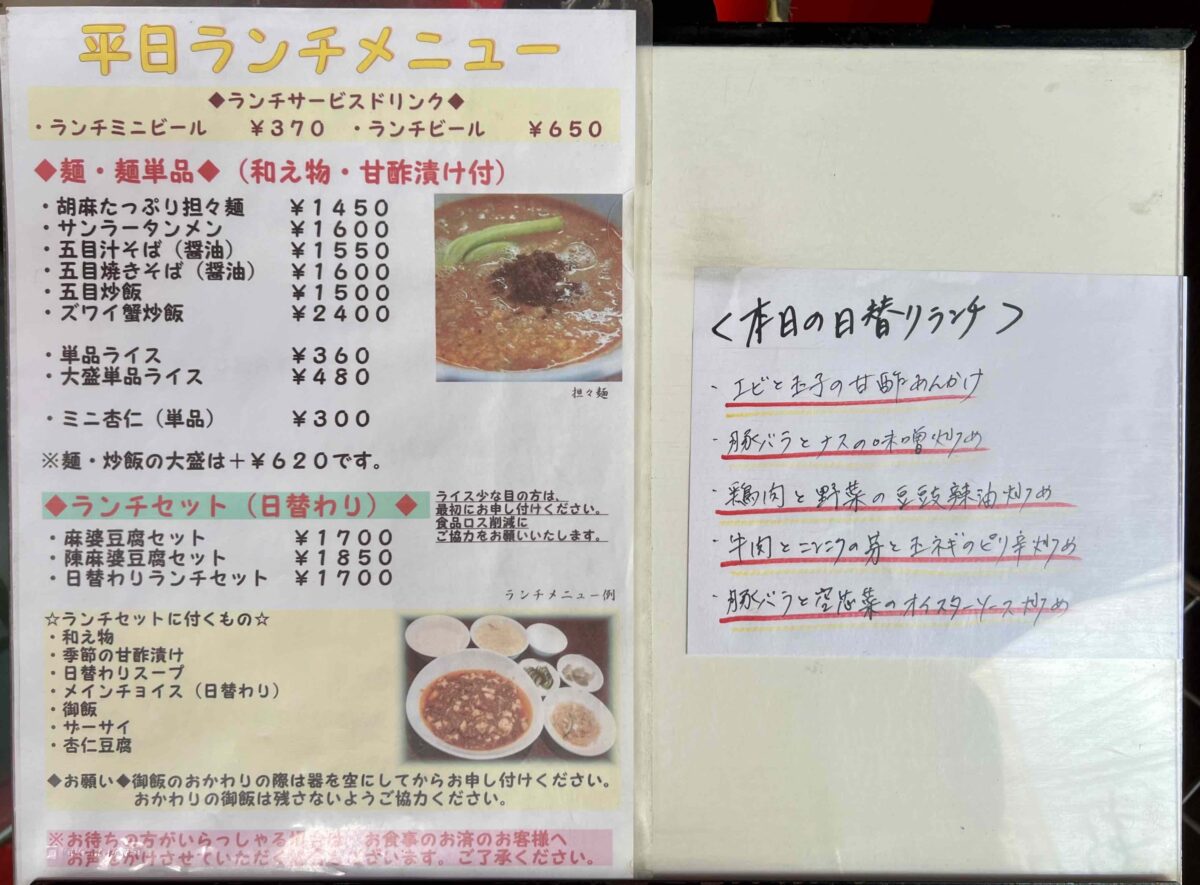 平日ランチメニュー
◆ランチサービスドリンク◆
・ランチミニビール ￥３７０ ・ランチビール ￥６５０
◆麺・麺単品◆（和え物・甘酢漬け付）
・胡麻たっぷり担々麺 ￥１４５０
・サンラータンメン ￥１６００
・五目汁そば（醤油） ￥１５５０
・五目焼きそば（醤油） ￥１６００
・五目炒飯 ￥１５００
・ズワイ蟹炒飯 ￥２４００
・単品ライス ￥３６０
・大盛単品ライス ￥４８０
担々麺
・ミニ杏仁（単品） ￥３００
※麺・炒飯の大盛は＋￥６２０です。
◆ランチセット（日替わり）◆
ライス少な目の方は、
最初にお申し付けください。
食品ロス削減に
ご協力をお願いいたします。
・麻婆豆腐セット ￥１７００
・陳麻婆豆腐セット ￥１８５０
・日替わりランチセット ￥１７００
ランチメニュー例
☆ランチセットに付くもの☆
・和え物
・季節の甘酢漬け
・日替わりスープ
・メインチョイス（日替わり）
・御飯
・ザーサイ
・杏仁豆腐
◆お願い◆御飯のおかわりの際は器を空にしてからお申し付けください。
おかわりの御飯は残さないようご協力ください。
※お待ちの方がいらっしゃる お食事のお済のお客様へ
お声をかけさせていただく ございます。ご了承ください。
＜本日の日替りランチ＞
・エビと玉子の甘酢あんかけ
・豚バラとナスの味噌炒め
・鶏肉と野菜の豆豉辣油炒め
・牛肉とニンニクの芽と玉ネギのピリ辛炒め
・豚バラと空芯菜のオイスターソース炒め